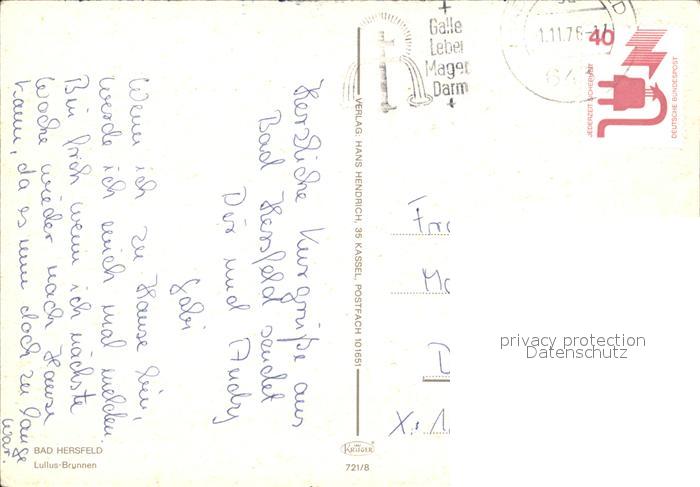 Herzliche Kurgrüße aus
Bad Hersfeld sendet
Dir und Andy
Gabi
Wenn ich zu Hause bin,
werde ich mich mal melden.
Bin froh wenn ich nächste
Woche wieder nach Hause
kann, da es nun doch zu lange
war.
BAD HERSFELD
Lullus-Brunnen
VERLAG: HANS HENDRICH, 35 KASSEL, POSTFACH 101651
KRÜGER
721/8
Galle
Leber
Magen
Darm
1.11.76
64
40
JEDERZEIT SICHERHEIT
DEUTSCHE BUNDESPOST
Fra
Mo
D
X: 1.
privacy protection
Datenschutz